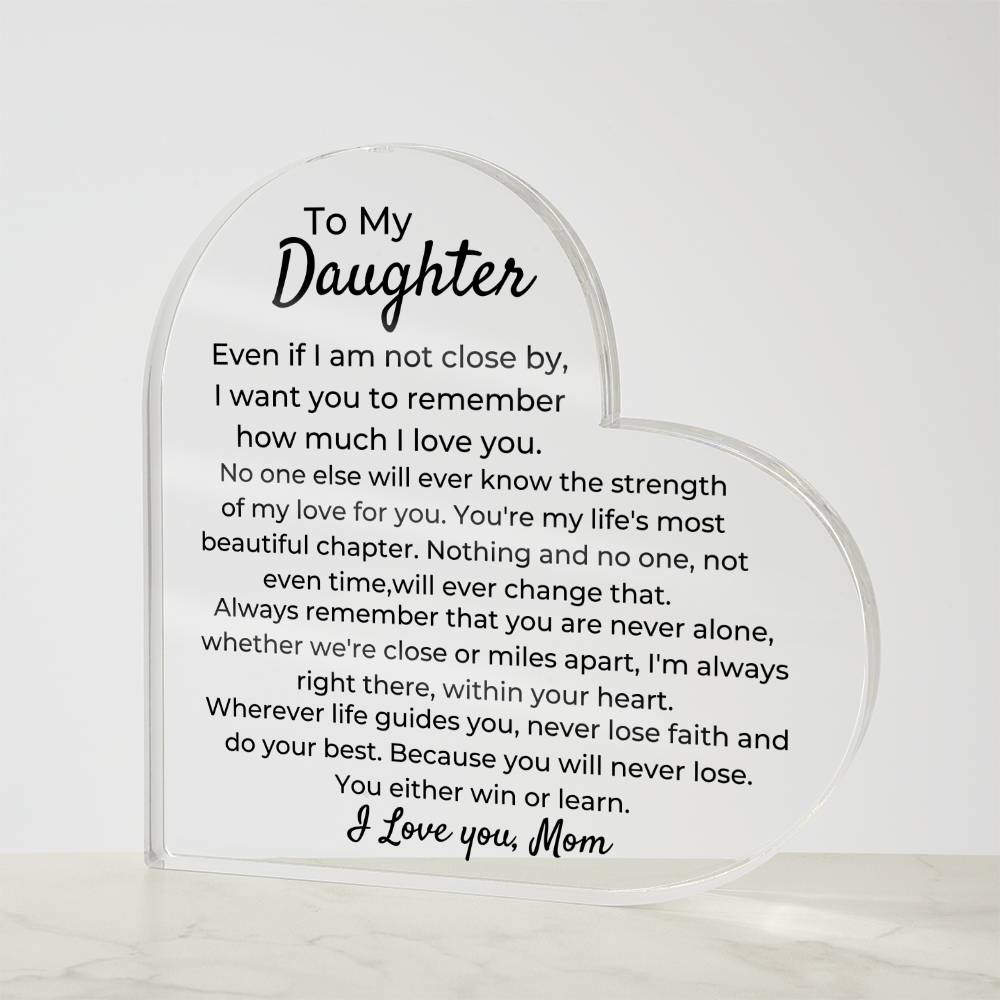 To My
Daughter
Even if I am not close by,
I want you to remember
how much I love you.
No one else will ever know the strength
of my love for you. You're my life's most
beautiful chapter. Nothing and no one, not
even time,will ever change that.
Always remember that you are never alone,
whether we're close or miles apart, I'm always
right there, within your heart.
Wherever life guides you, never lose faith and
do your best. Because you will never lose.
You either win or learn.
I Love you, Mom